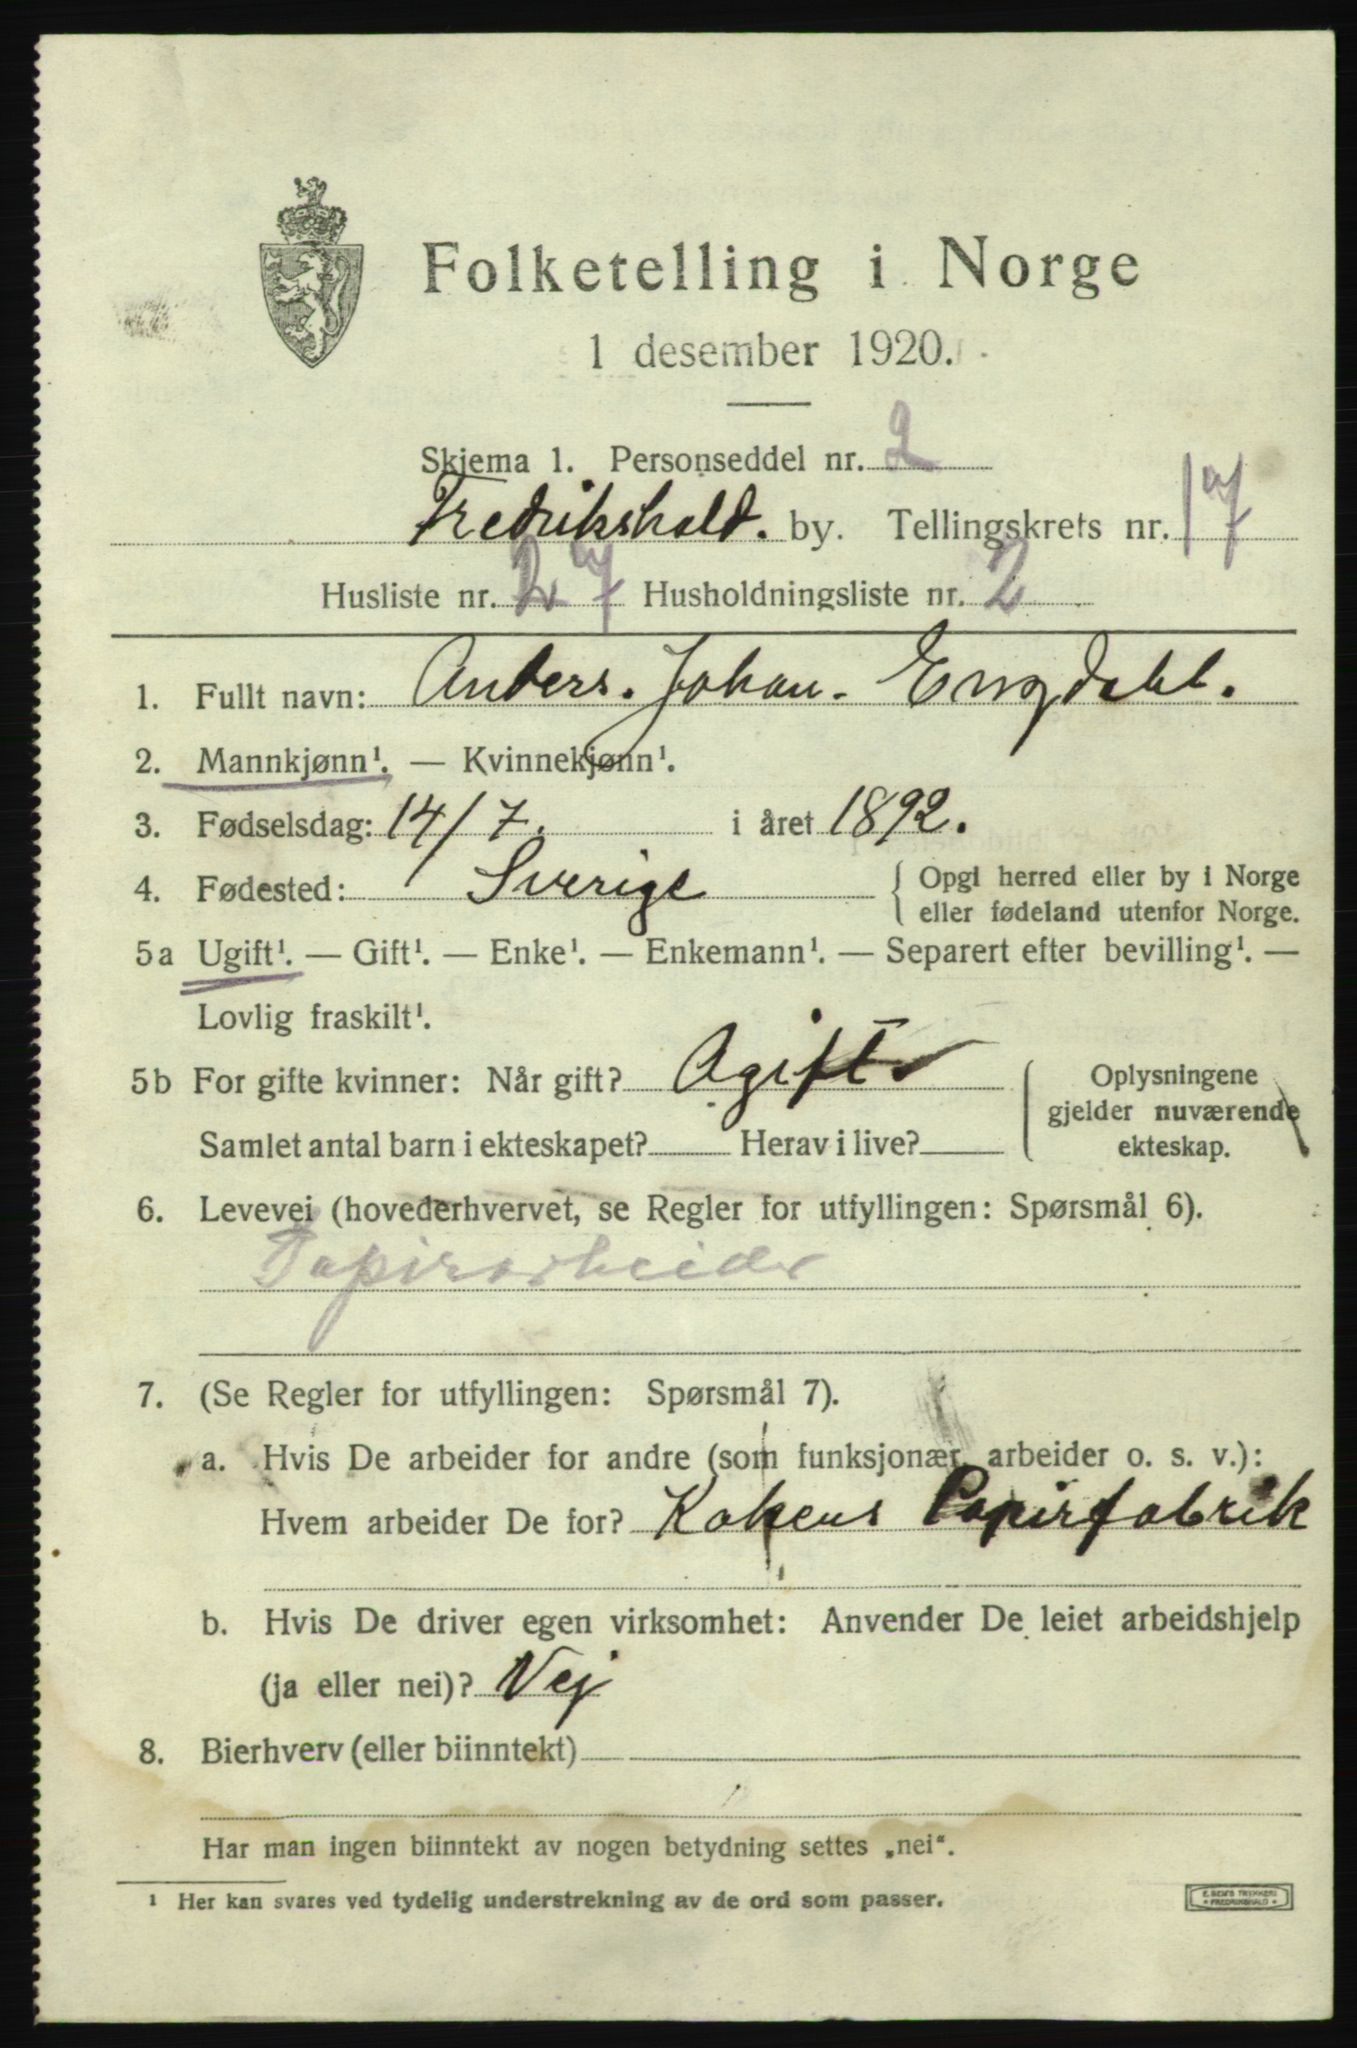 Folketelling i Norge
1 desember 1920.
Skjema 1. Personseddel nr. 2
Fredrikshald. by. Tellingskrets nr. 17
Husliste nr. 27 Husholdningsliste nr. 2
1. Fullt navn: Anders. Johan. Engdahl.
2. Mannkjønn¹. — Kvinnekjønn¹.
3. Fødselsdag: 14/7. i året 1892.
4. Fødested: Sverige { Opgi herred eller by i Norge
eller fødeland utenfor Norge.
5a Ugift¹. — Gift¹. — Enke¹. — Enkemann¹. — Separert efter bevilling¹. —
Lovlig fraskilt¹.
5b For gifte kvinner: Når gift? Ogift
Samlet antal barn i ekteskapet? Herav i live?
Oplysningene
gjelder nuværende
ekteskap.
6. Levevei (hovederhvervet, se Regler for utfyllingen: Spørsmål 6).
Papirarbeider
7. (Se Regler for utfyllingen: Spørsmål 7).
a. Hvis De arbeider for andre (som funksjonær, arbeider o. s. v.):
Hvem arbeider De for? Kakens Papirfabrik
b. Hvis De driver egen virksomhet: Anvender De leiet arbeidshjelp
(ja eller nei)? Nej
8. Bierhverv (eller biinntekt)
Har man ingen biinntekt av nogen betydning settes „nei".
¹ Her kan svares ved tydelig understrekning av de ord som passer.
E. SEM'S TRYKKERI
FREDRIKSHALD